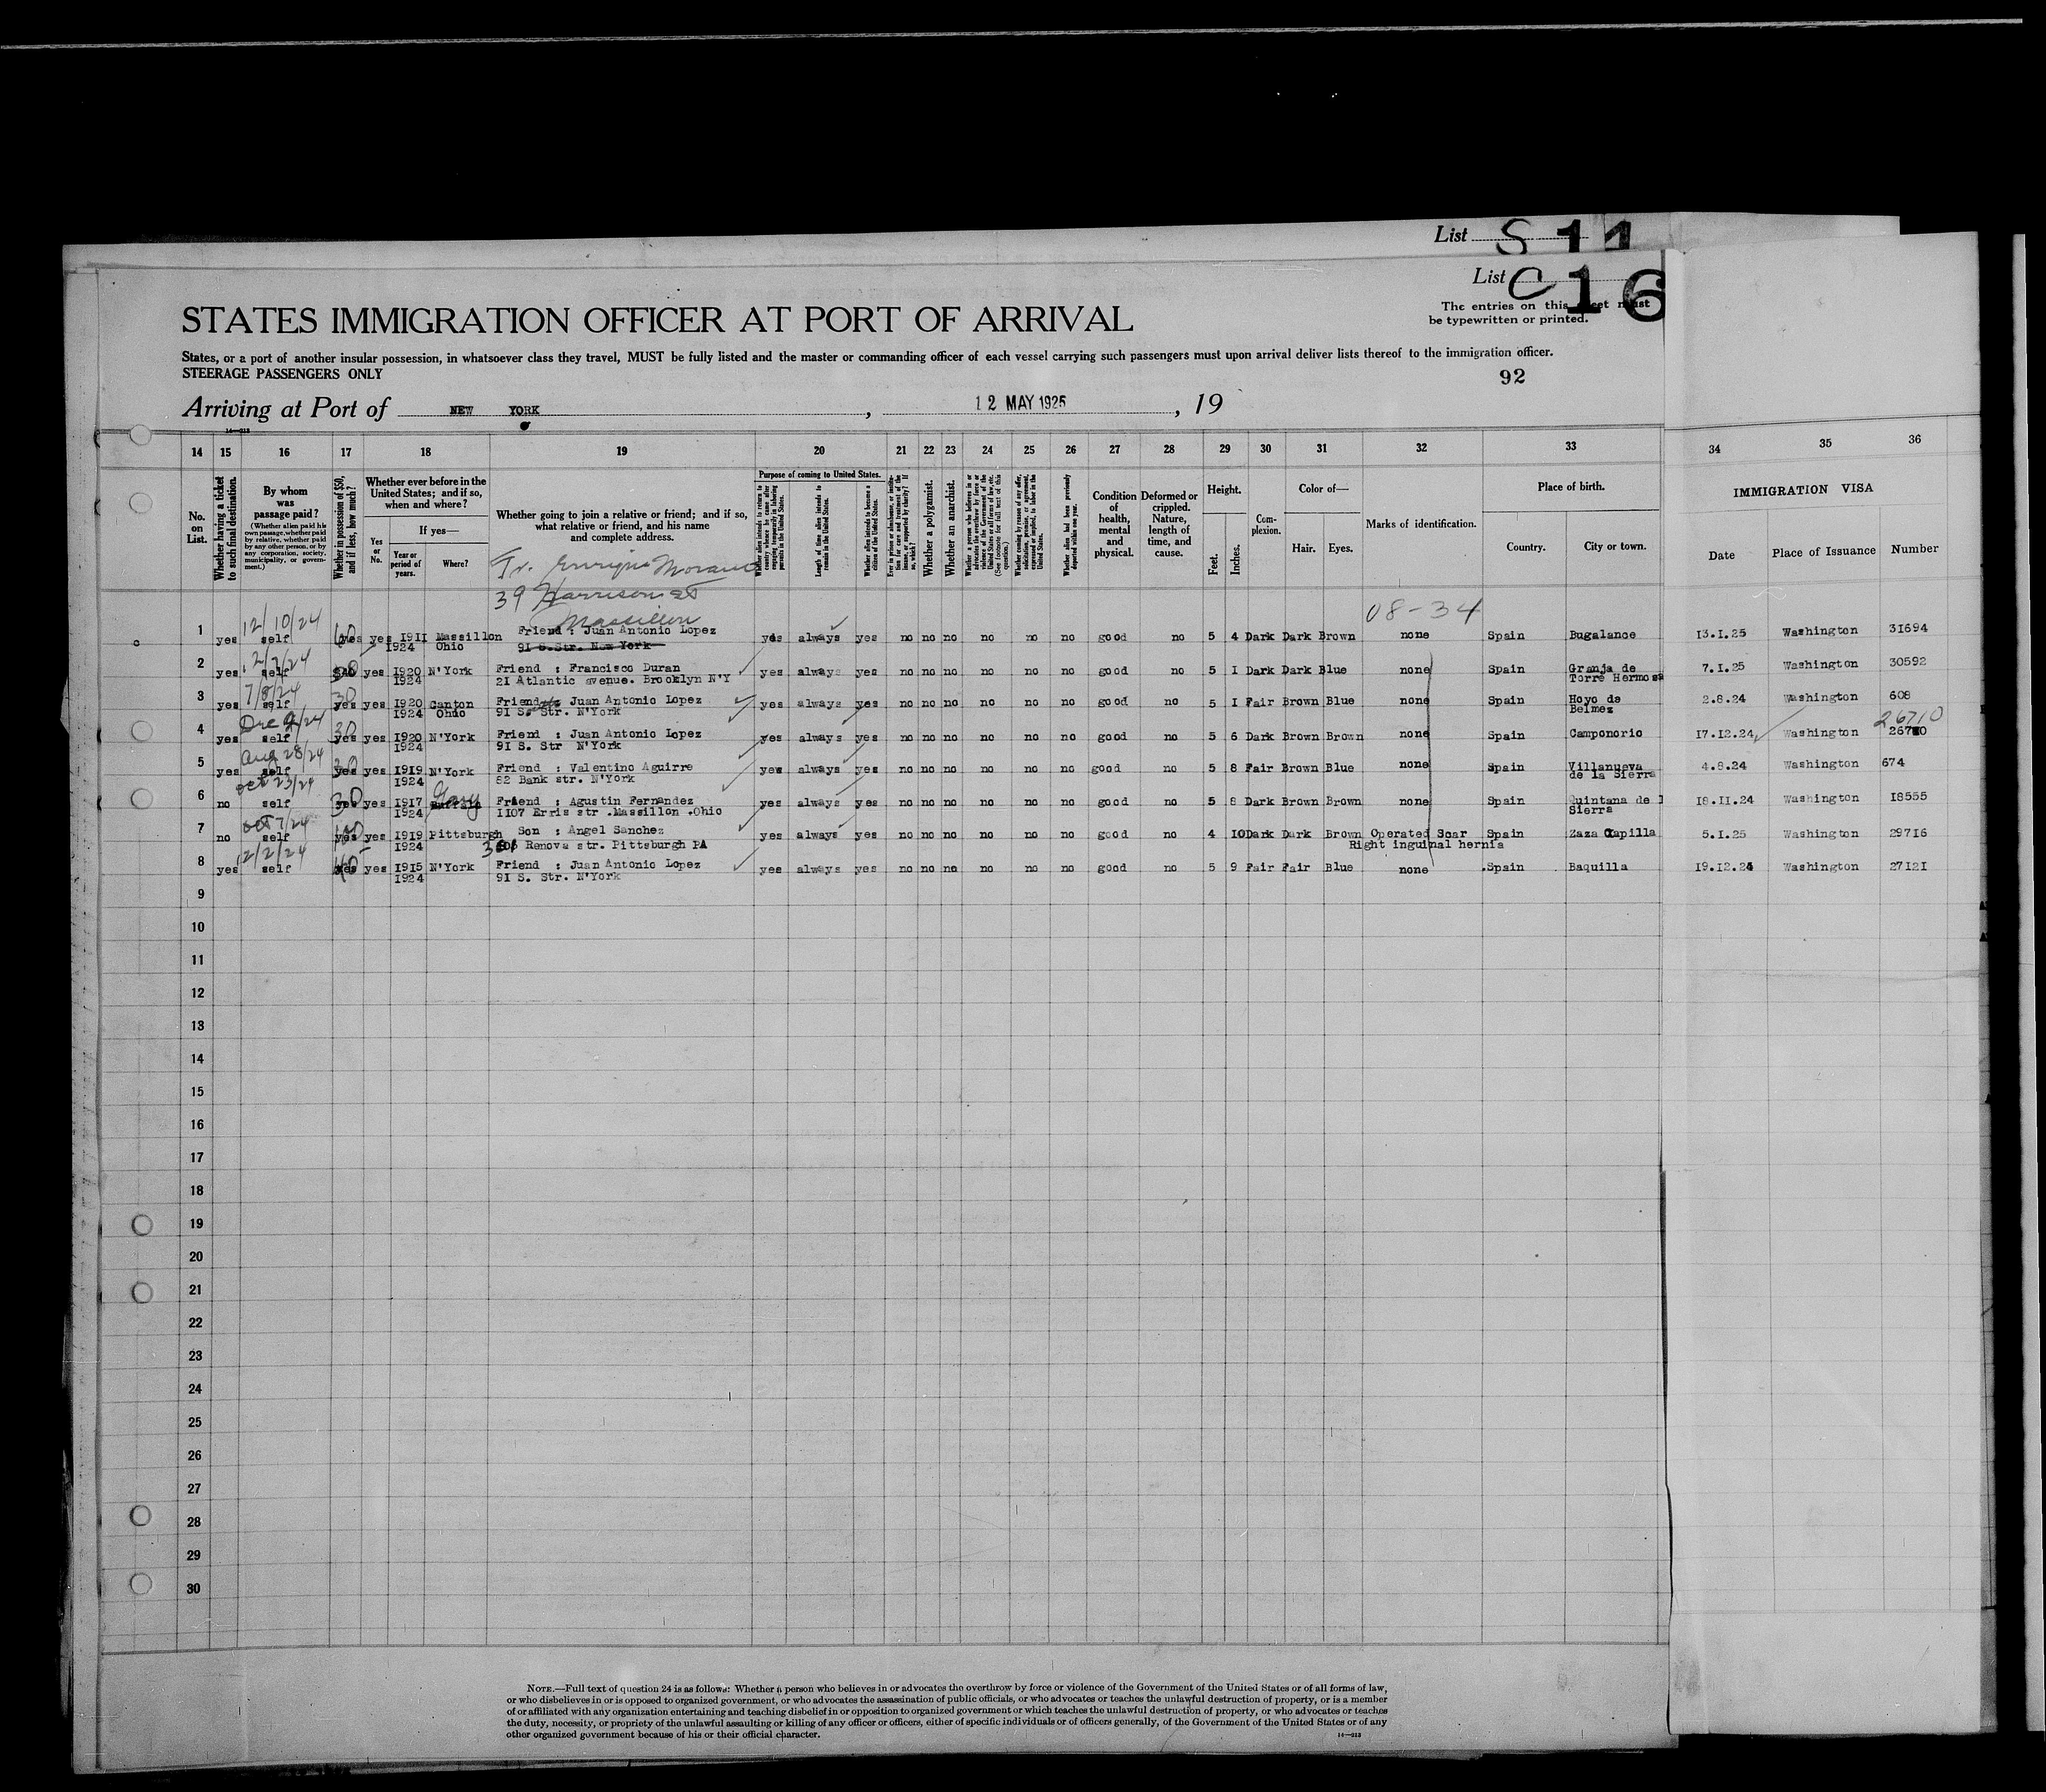 List S 11
List C 16
The entries on this sheet must
be typewritten or printed.
STATES IMMIGRATION OFFICER AT PORT OF ARRIVAL
States, or a port of another insular possession, in whatsoever class they travel, MUST be fully listed and the master or commanding officer of each vessel carrying such passengers must upon arrival deliver lists thereof to the immigration officer.
STEERAGE PASSENGERS ONLY
92
Arriving at Port of NEW YORK, 12 MAY 1925, 19
14—213
14 15 16 17 18 19 20 21 22 23 24 25 26 27 28 29 30 31 32 33 34 35 36
No. on List.
Whether having a ticket to such final destination.
By whom was passage paid?
(Whether alien paid his own passage, whether paid by relative, whether paid by any other person, or by any corporation, society, municipality, or government.)
Whether in possession of $50, and if less, how much?
Whether ever before in the United States; and if so, when and where?
Yes or No.
If yes—
Year or period of years.
Where?
Whether going to join a relative or friend; and if so, what relative or friend, and his name and complete address.
Purpose of coming to United States.
Length of time alien intends to remain in the United States.
Whether alien intends to become a citizen of the United States.
Whether a polygamist.
Whether an anarchist.
Condition of health, mental and physical.
Deformed or crippled. Nature, length of time, and cause.
Height.
Feet. Inches.
Complexion.
Color of—
Hair. Eyes.
Marks of identification.
Place of birth.
Country. City or town.
IMMIGRATION VISA
Date Place of Issuance Number
Fr. Enrique Morano
39 Harrison St
Massillon
08-34
12/10/24
1 yes self yes 60 yes 1911 Massillon Friend : Juan Antonio Lopez yes always yes no no no no no no good no 5 4 Dark Dark Brown none Spain Bugalance 13.1.25 Washington 31694
1924 Ohio 91 S.Str. New York
12/3/24
2 yes self yes 1920 N'York Friend : Francisco Duran yes always yes no no no no no no good no 5 1 Dark Dark Blue none Spain Granja de 7.1.25 Washington 30592
1924 21 Atlantic avenue. Brooklyn N'Y Torre Hermosa
7/8/24
3 yes self yes 30 yes 1920 Canton Friend Juan Antonio Lopez yes always yes no no no no no no good no 5 1 Fair Brown Blue none Spain Hoyo de 2.8.24 Washington 608
1924 Ohio 91 S. Str. N'York Belmez
Dec 9/24 26710
4 yes self yes 30 yes 1920 N'York Friend : Juan Antonio Lopez yes always yes no no no no no no good no 5 6 Dark Brown Brown none Spain Camponorio 17.12.24 Washington
1924 91 S. Str N'York
Aug 28/24
5 yes self yes yes 1919 N'York Friend : Valentino Aguirre yes always yes no no no no no no good no 5 8 Fair Brown Blue none Spain Villanueva 4.8.24 Washington 674
1924 82 Bank str. N'York de la Sierra
Oct 23/24
6 no self yes 30 yes 1917 Gary Friend : Agustin Fernandez yes always yes no no no no no no good no 5 8 Dark Brown Brown none Spain Quintana de l 18.11.24 Washington 18555
1924 1107 Erris str .Massillon .Ohio Sierra
Oct 7/24
7 no self yes yes 1919 Pittsburgh Son : Angel Sanchez yes always yes no no no no no no good no 4 10 Dark Dark Brown Operated Scar Spain Zaza Capilla 5.1.25 Washington 29716
1924 Renova str. Pittsburgh PA Right inguinal hernia
12/2/24
8 yes self yes 40 yes 1915 N'York Friend : Juan Antonio Lopez yes always yes no no no no no no good no 5 9 Fair Fair Blue none Spain Baquilla 19.12.24 Washington 27121
1924 91 S. Str. N'York
9
10
11
12
13
14
15
16
17
18
19
20
21
22
23
24
25
26
27
28
29
30
NOTE.—Full text of question 24 is as follows: Whether a person who believes in or advocates the overthrow by force or violence of the Government of the United States or of all forms of law,
or who disbelieves in or is opposed to organized government, or who advocates the assassination of public officials, or who advocates or teaches the unlawful destruction of property, or is a member
of or affiliated with any organization entertaining and teaching disbelief in or opposition to organized government or which teaches the unlawful destruction of property, or who advocates or teaches
the duty, necessity, or propriety of the unlawful assaulting or killing of any officer or officers, either of specific individuals or of officers generally, of the Government of the United States or of any
other organized government because of his or their official character.
14—213